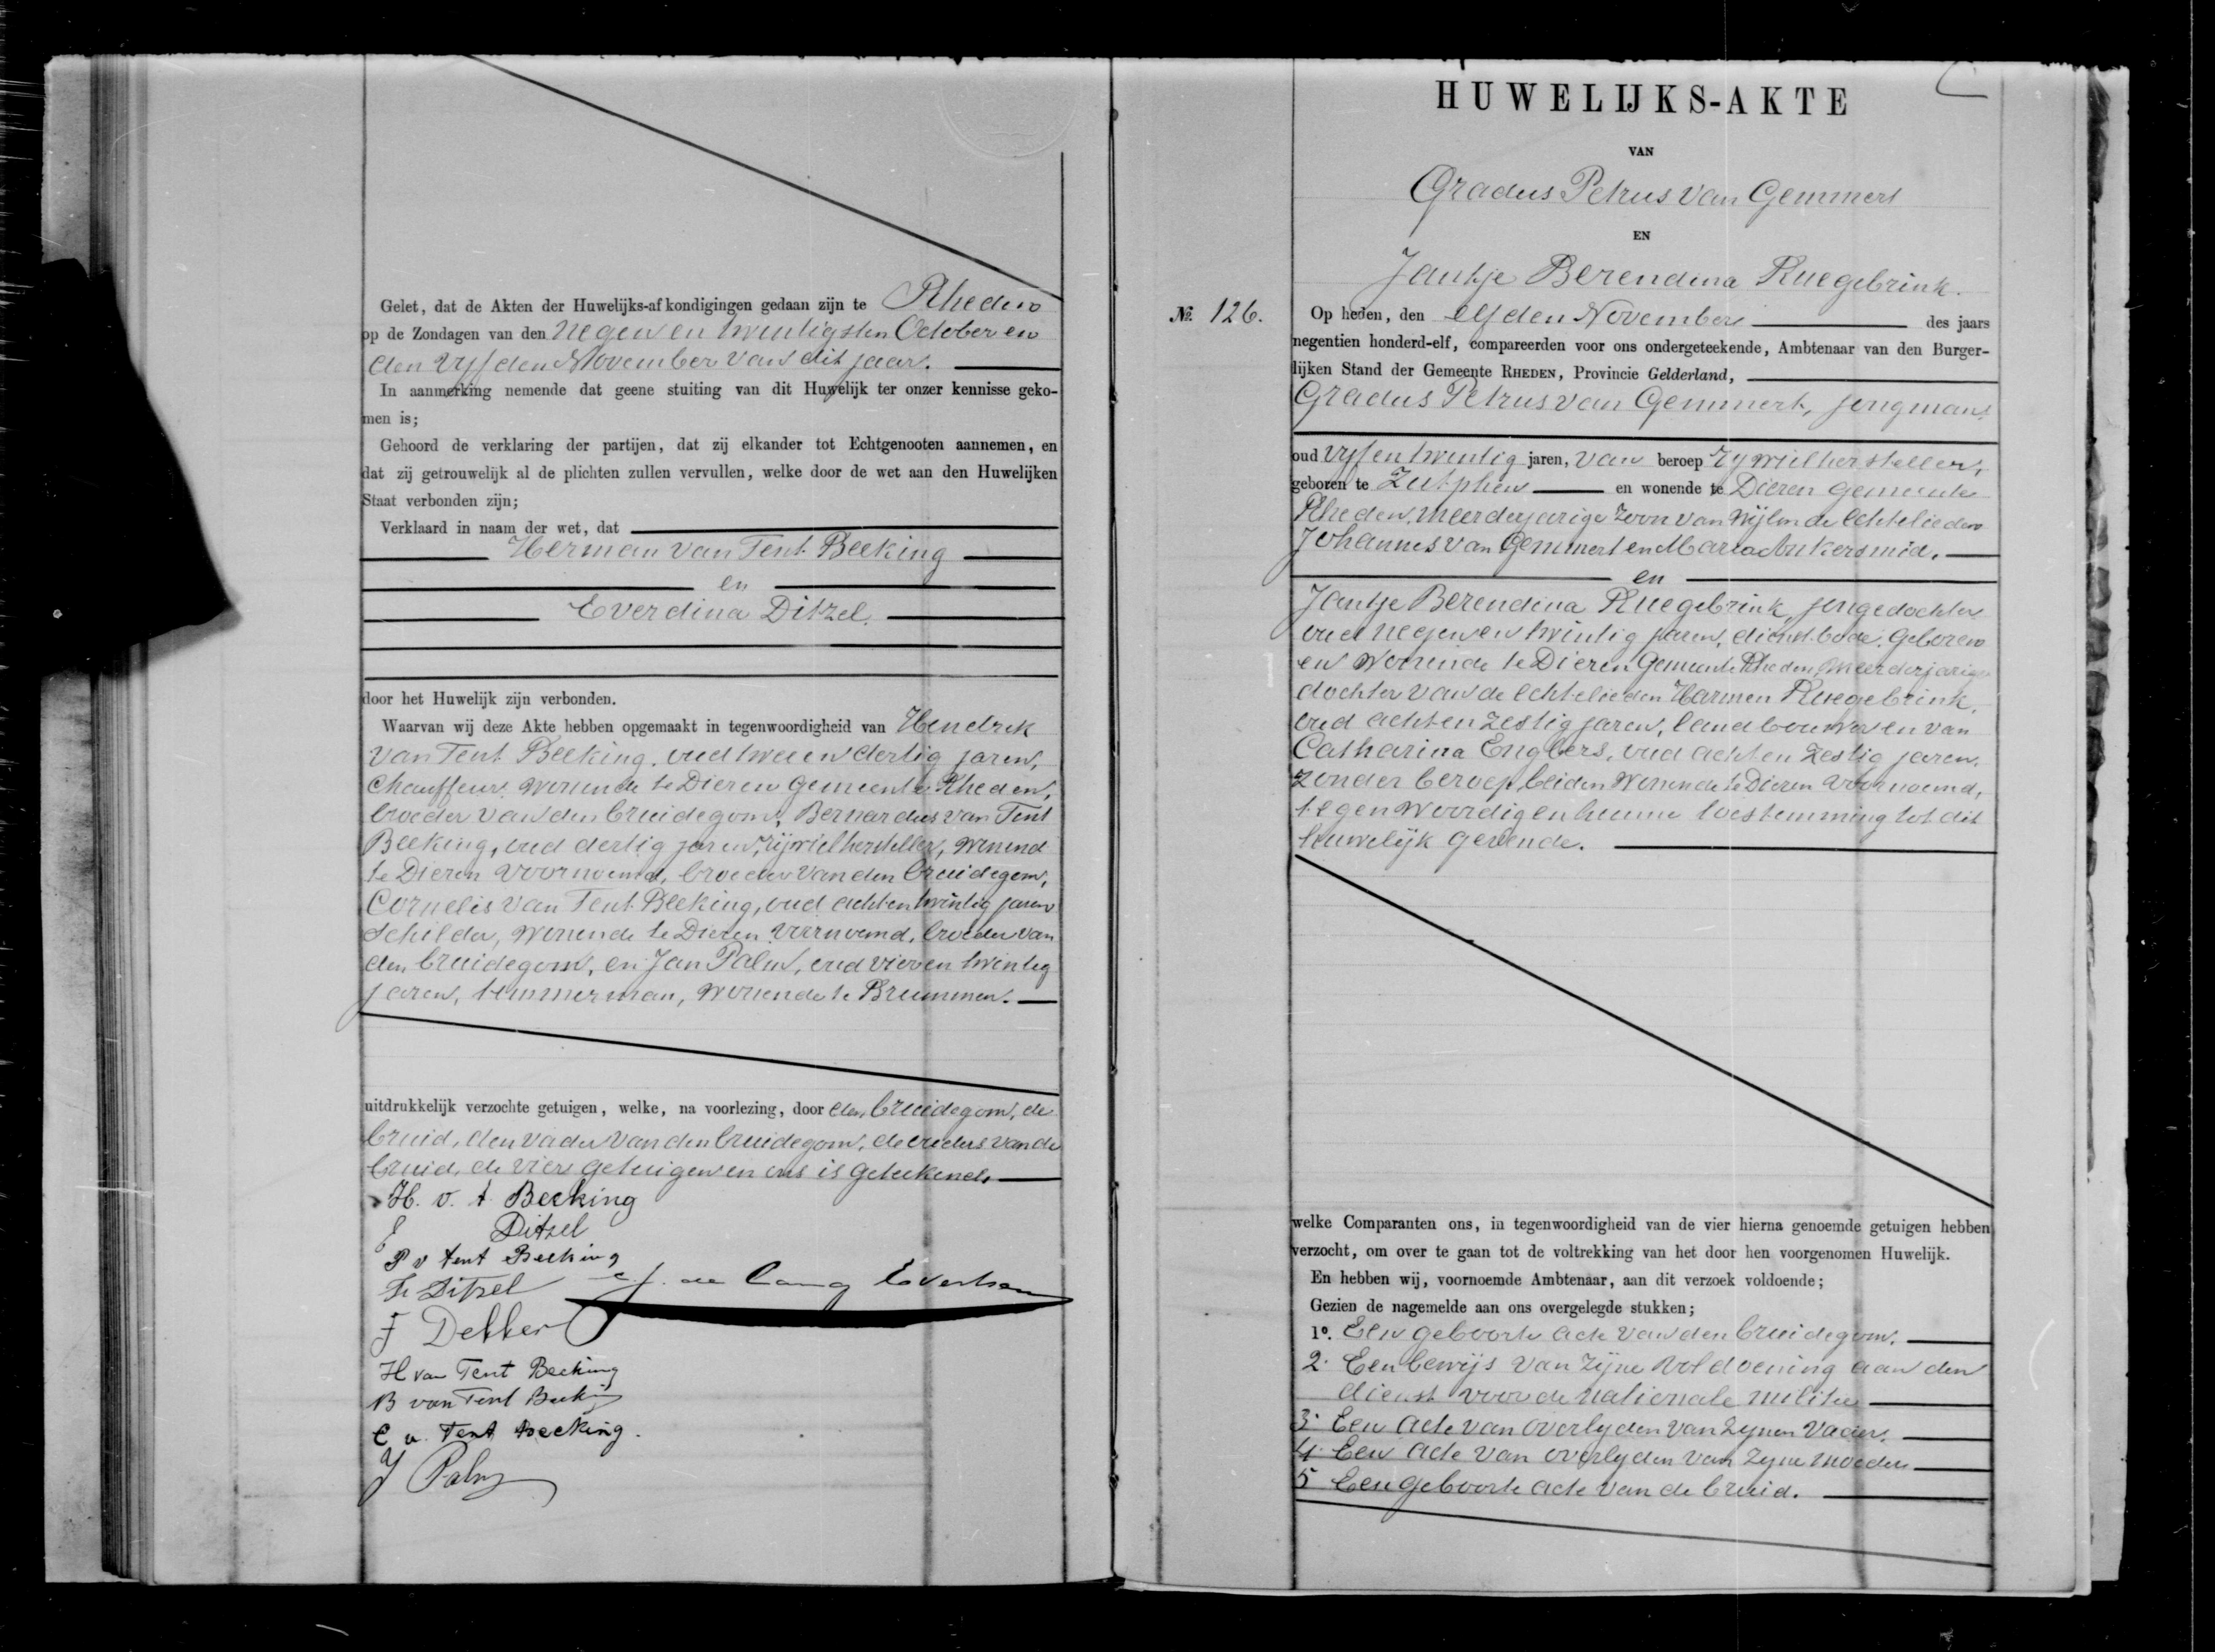 Gelet, dat de Akten der Huwelijks-afkondigingen gedaan zijn te Rheden
op de Zondagen van den negen en twintigsten October en
den vijfden November van dit jaar.
In aanmerking nemende dat geene stuiting van dit Huwelijk ter onzer kennisse geko-
men is;
Gehoord de verklaring der partijen, dat zij elkander tot Echtgenooten aannemen, en
dat zij getrouwelijk al de plichten zullen vervullen, welke door de wet aan den Huwelijken
Staat verbonden zijn;
Verklaard in naam der wet, dat
Herman van Tent Beeking
en
Everdina Ditzel.
door het Huwelijk zijn verbonden.
Waarvan wij deze Akte hebben opgemaakt in tegenwoordigheid van Hendrik
van Tent Beeking, oud twee en dertig jaren,
chauffeur, wonende te Dieren gemeente Rheden,
broeder van den bruidegom, Bernardus van Tent
Beeking, oud dertig jaren, rijwielhersteller, wonend
te Dieren voornoemd, broeder van den bruidegom,
Cornelis van Tent Beeking, oud acht en twintig jaren
schilder, wonende te Dieren voornoemd, broeder van
den bruidegom, en Jan Palm, oud vier en twintig
jaren, timmerman, wonende te Brummen.
uitdrukkelijk verzochte getuigen, welke, na voorlezing, door den bruidegom, de
bruid, den vader van den bruidegom, de ouders van de
bruid, de vier getuigen en ons is geteekend.
H. v. t. Beeking
E Ditzel
P v tent Beeking
F. Ditzel
de Lang Evertsen
F Dekker
H van Tent Beeking
B van Tent Beeking
C v. Tent Beeking.
J Palm
HUWELIJKS-AKTE
VAN
Gradus Petrus van Gemmert
EN
Jantje Berendina Ruegebrink.
№. 126.
Op heden, den elfden November des jaars
negentien honderd-elf, compareerden voor ons ondergeteekende, Ambtenaar van den Burger-
lijken Stand der Gemeente RHEDEN, Provincie Gelderland,
Gradus Petrus van Gemmert, jongman,
oud vijf en twintig jaren, van beroep rijwielhersteller,
geboren te Zutphen en wonende te Dieren gemeente
Rheden, meerderjarige zoon van wijlen de echtelieden
Johannes van Gemmert en Maria Ankersmid.
en
Jantje Berendina Ruegebrink, jongedochter
oud negen en twintig jaren, dienstbode, geboren
en wonende te Dieren gemeente Rheden, meerderjarige
dochter van de echtelieden Harmen Ruegebrink,
oud acht en zestig jaren, landbouwer en van
Catharina Engbers, oud acht en zestig jaren,
zonder beroep beiden wonende te Dieren voornoemd,
tegenwoordig en hunne toestemming tot dit
huwelijk gevende.
welke Comparanten ons, in tegenwoordigheid van de vier hierna genoemde getuigen hebben
verzocht, om over te gaan tot de voltrekking van het door hen voorgenomen Huwelijk.
En hebben wij, voornoemde Ambtenaar, aan dit verzoek voldoende;
Gezien de nagemelde aan ons overgelegde stukken;
1o. Een geboorte acte van den bruidegom.
2. Een bewijs van zijne voldoening aan den
dienst voor de nationale militie
3. Een acte van overlyden van zynen vader.
4. Een acte van overlyden van zyne moeder
5 Een geboorte acte van de bruid.